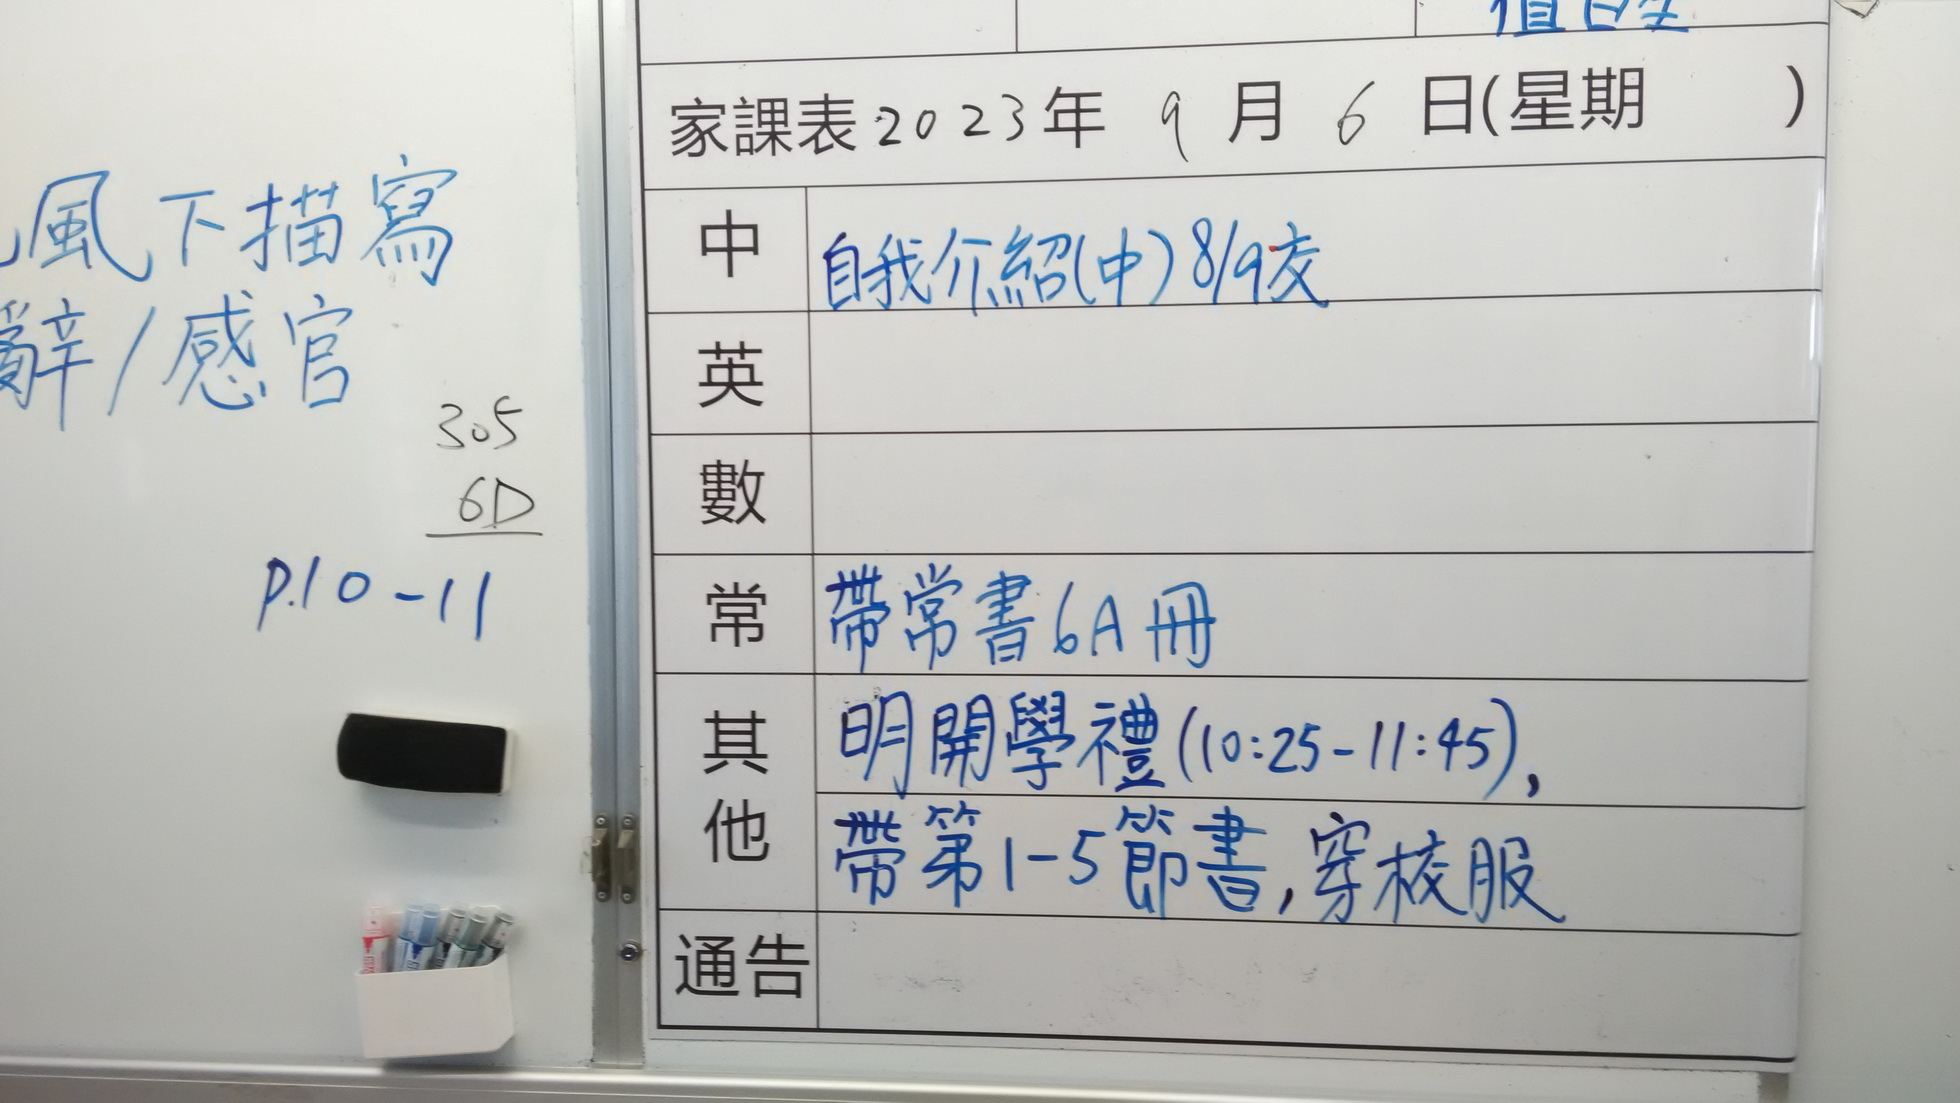 風下描寫
辭/感官
305
6D
P.10-11
值日生
家課表2023年9月6日(星期 )
中 自我介紹(中)8/9交
英
數
常 帶常書6A冊
其他 明開學禮(10:25-11:45),
帶第1-5節書,穿校服
通告